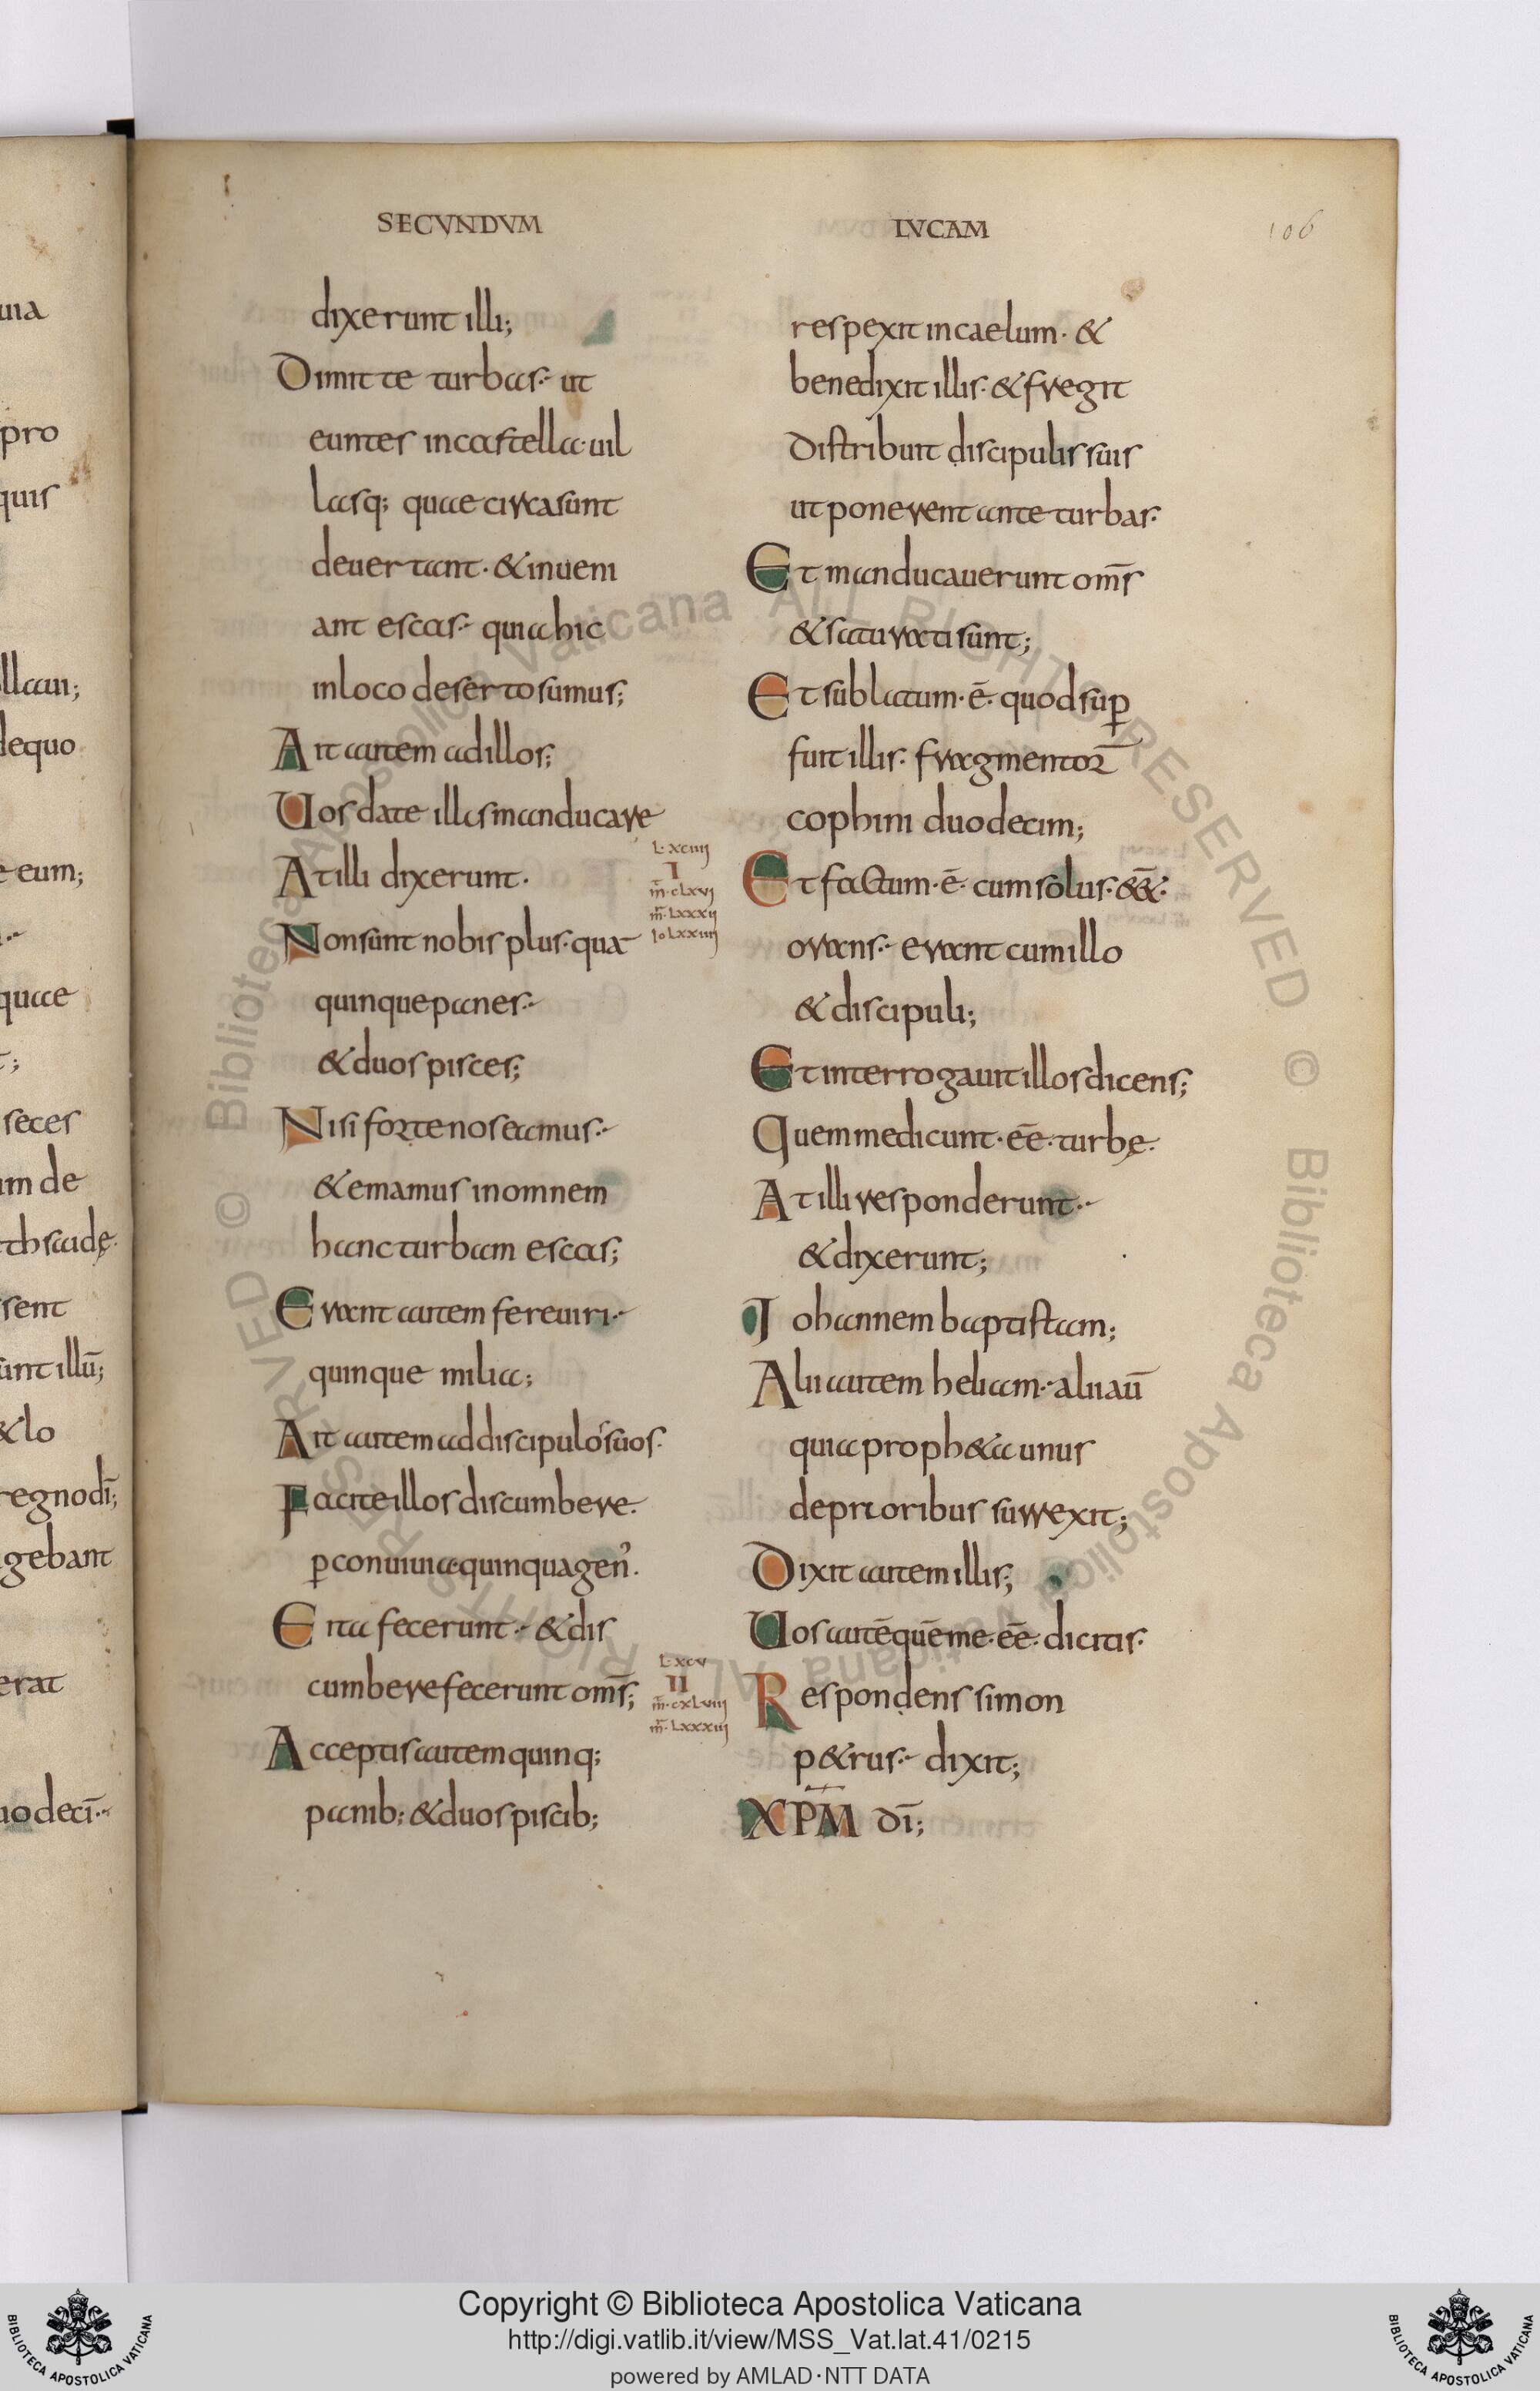 SECUNDUM
LUCAM
106
dixerunt illi;
Dimitte turbas· ut
euntes incastella·uil
lasq; quae circasunt
deuertant·&inueni
ant escas· quiahic
inloco desertosumus;
Ait autem adillos;
Uosdate illismanducare
Atilli dixerunt·
Nonsunt nobis plus·quā
quinquepanes·
&duospisces;
Nisi fortenoseamus·
&emamus inomnem
hancturbam escas;
Erant autem fereuiri·
quinque milia;
Ait autem addiscipulos suos·
Faciteillosdiscumbere·
p̄conuiuia·quinquagen̄·
Etita fecerunt·&dis
cumberefecerunt om̄s;
Acceptisautemquinq;
panib;&duospiscib;
L·xciiij
I
m̄·clxvj
m̄·lxxxij
io lxxiiij
L·xcv
II
m̄·cxlviiij
m̄·lxxxiij
respexit incaelum·&
benedixit illis·&fregit
distribuit discipulissuis
utponerent anteturbas·
Et manducauerunt om̄s
&saturatisunt;
Etsublatum·ē·quodsup̄
fuit illis·fragmentoꝝ
cophini duodecim;
Etfactum·ē·cumsolus·ēēt·
orans·erant cumillo
&discipuli;
Etinterrogauit illosdicens;
Quemmedicunt·ēē·turbę·
Atilliresponderunt·
&dixerunt;
Johannem baptistam;
Alii autem heliam·aliiaū
quiaproph&aunus
deprioribus surrexit;
Dixit autem illis;
Uosautēquēme·ēē·dicitis·
Respondens simon
p&rus· dixit;
XPM̄ dī;
uia
pro
quis
llam;
dequo
e eum;
quae
t;
seces
um de
thsaidę·
sent
unt illū;
&lo
regnodī;
gebant
erat
uodecī·
© Biblioteca Apostolica Vaticana ALL RIGHTS RESERVED © Biblioteca Apostolica Vaticana ALL RIGHTS RESERVED
Copyright © Biblioteca Apostolica Vaticana
http://digi.vatlib.it/view/MSS_Vat.lat.41/0215
powered by AMLAD·NTT DATA
BIBLIOTECA APOSTOLICA VATICANA
BIBLIOTECA APOSTOLICA VATICANA